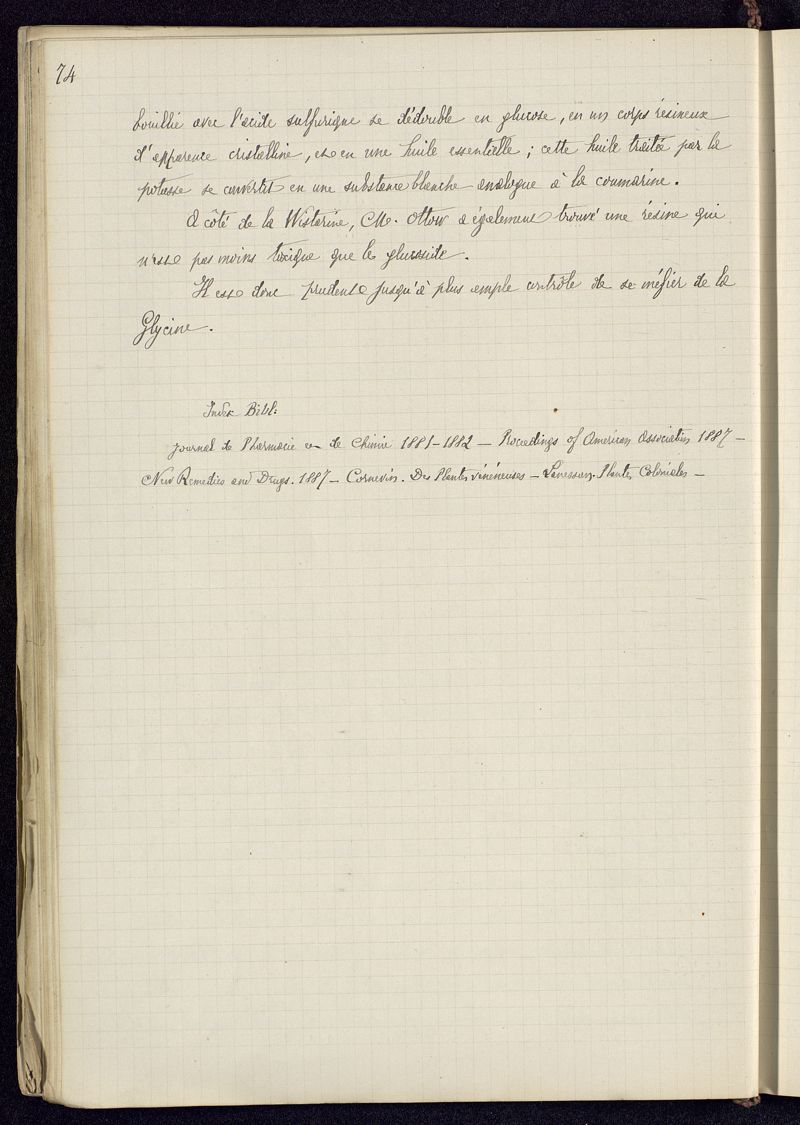 74
bouillie avec l'acide sulfurique se dédouble en glucose, en un corps résineux
d'apparence cristalline, et en une huile essentielle ; cette huile traitée par la
potasse se convertit en une substance blanche analogue à la coumarine.
A côté de la Wistarine, M. Ottow a également trouvé une résine qui
n'est pas moins toxique que le glucoside.
Il est donc prudent jusqu'à plus ample contrôle de se méfier de la
Glycine.
Index Bibl:
Journal de Pharmacie et de Chimie 1881-1882 — Proceedings of American Association 1887 —
New Remedies and Drugs. 1887 — Cornevin. Des Plantes vénéneuses — Lanessan. Plantes Coloniales —